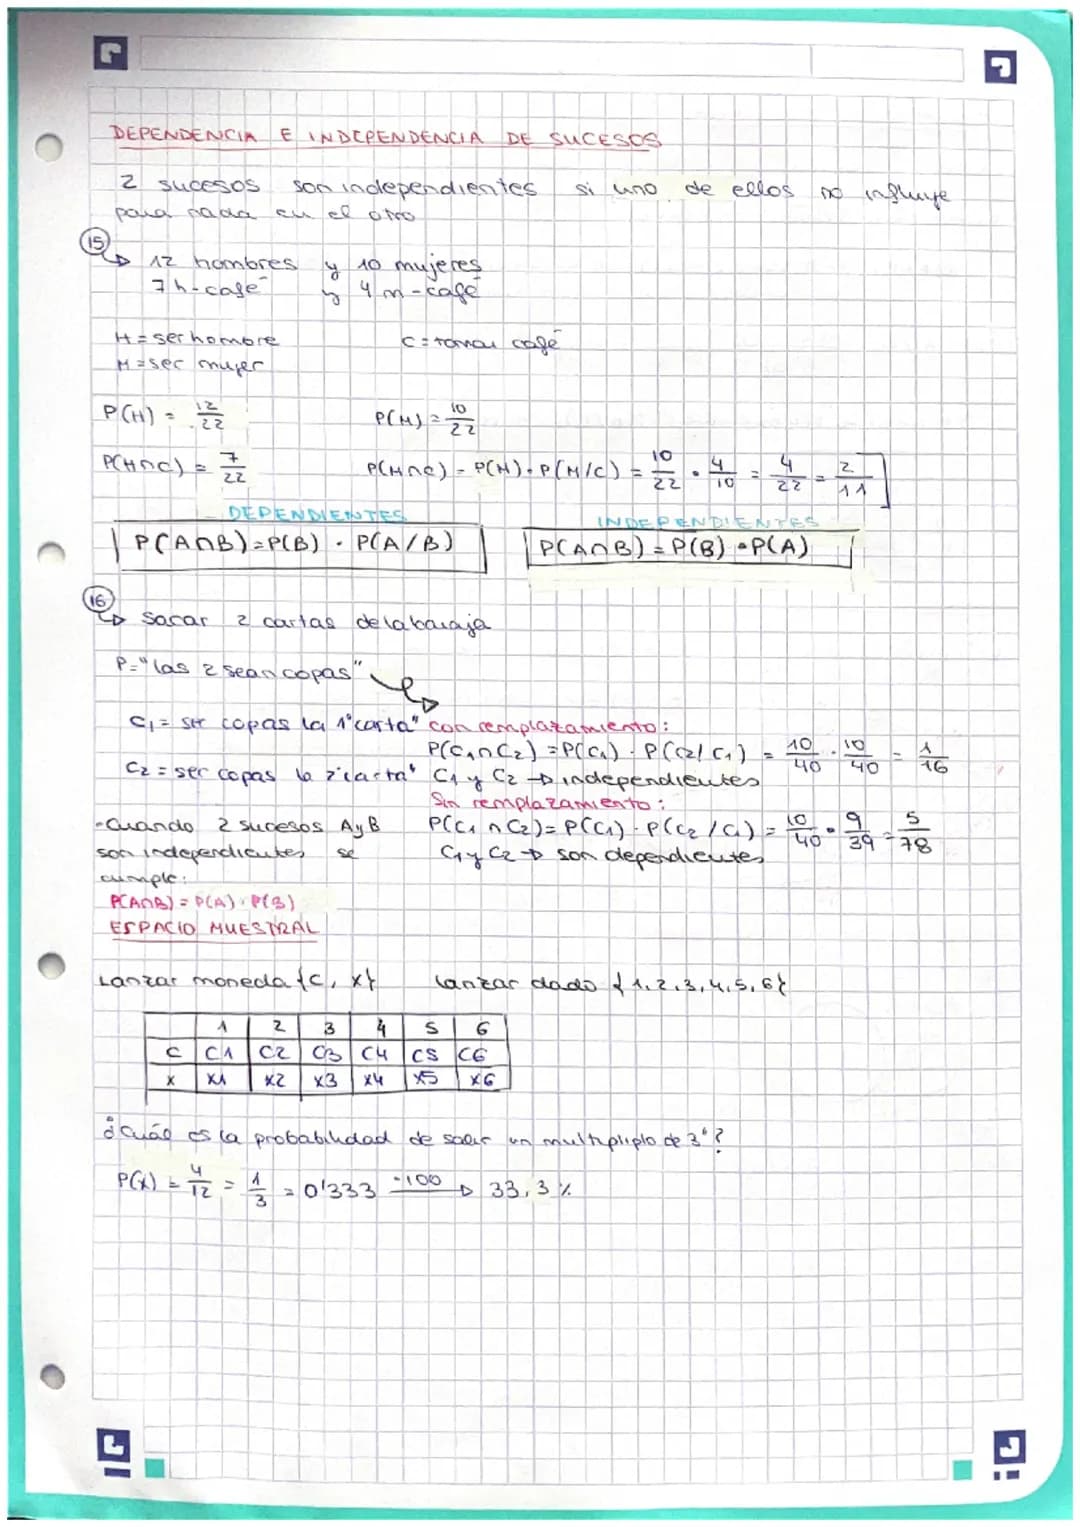 DEPENDENCIA E INDEPENDENCIA DE SUCESOS
2 sucesos son independientes si uno de ellos no influye
para nada en el otro
15
12 hombres y 10 mujeres
7 h-café y 4 m-café
H = ser hombre C = tomar café
M = ser mujer
P(H) = 12/22 P(M) = 10/22
P(H∩C) = 7/22 P(M∩C) = P(M) · P(M/C) = 10/22 · 4/10 = 4/22 = 2/11]
DEPENDIENTES INDEPENDIENTES
P(A∩B) = P(B) · P(A/B) P(A∩B) = P(B) · P(A)
16
Sacar 2 cartas de la baraja
P = "las 2 sean copas"
C1 = ser copas la 1ª carta" con remplazamiento:
P(C1∩C2) = P(C1) · P(C2/C1) = 10/40 · 10/40 = 1/16
C2 = ser copas la 2ª carta" C1 y C2 → independientes
Sin remplazamiento:
-Cuando 2 sucesos A y B P(C1∩C2) = P(C1) · P(C2/C1) = 10/40 · 9/39 = 5/78
son independientes se C1 y C2 → son dependientes
cumple:
P(A∩B) = P(A) · P(B)
ESPACIO MUESTRAL
Lanzar moneda {C, X} Lanzar dado {1,2,3,4,5,6}
1 2 3 4 5 6
C C1 C2 C3 C4 C5 C6
X X1 X2 X3 X4 X5 X6
¿Cuál es la probabilidad de salir un multipliplo de 3"?
P(X) = 4/12 = 1/3 = 0'333 ·100 → 33,3 %